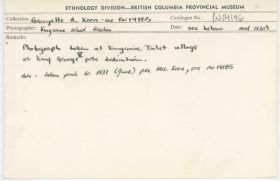 ETHNOLOGY DIVISION—BRITISH COLUMBIA PROVINCIAL MUSEUM
Collection: Georgette A. Keen - see PN 14185 Catalogue No.: PN 14196
Photographer: Kingcome school teacher Date: see below mid 1930's
Remarks:
Photograph taken at Kingcome Inlet village
at King George V pole dedication.
date - taken prior to 1937 (June) per Mrs. Keen, see PN 14185